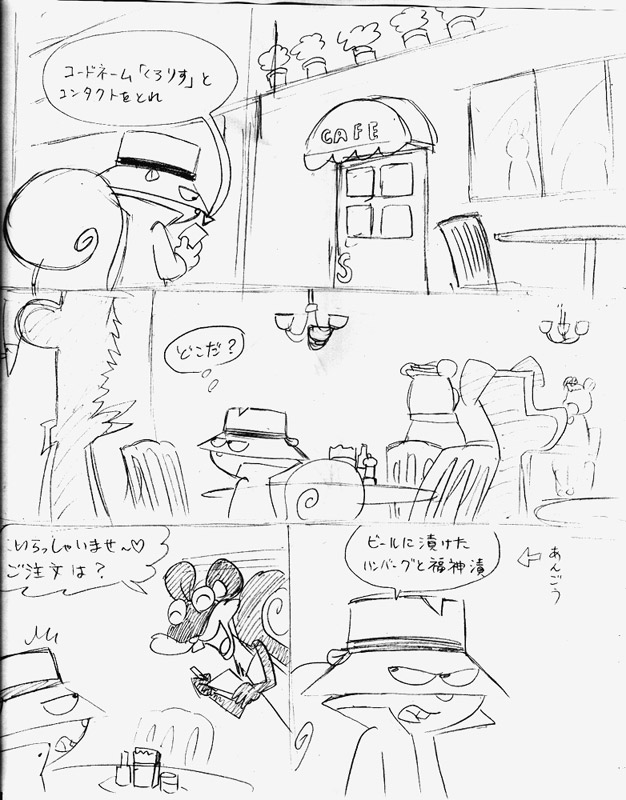 コードネーム「くろりす」と
コンタクトをとれ
CAFE
S
どこだ?
いらっしゃいませ〜♡
ご注文は?
ビールに漬けた
ハンバーグと福神漬
⇦ あんごう